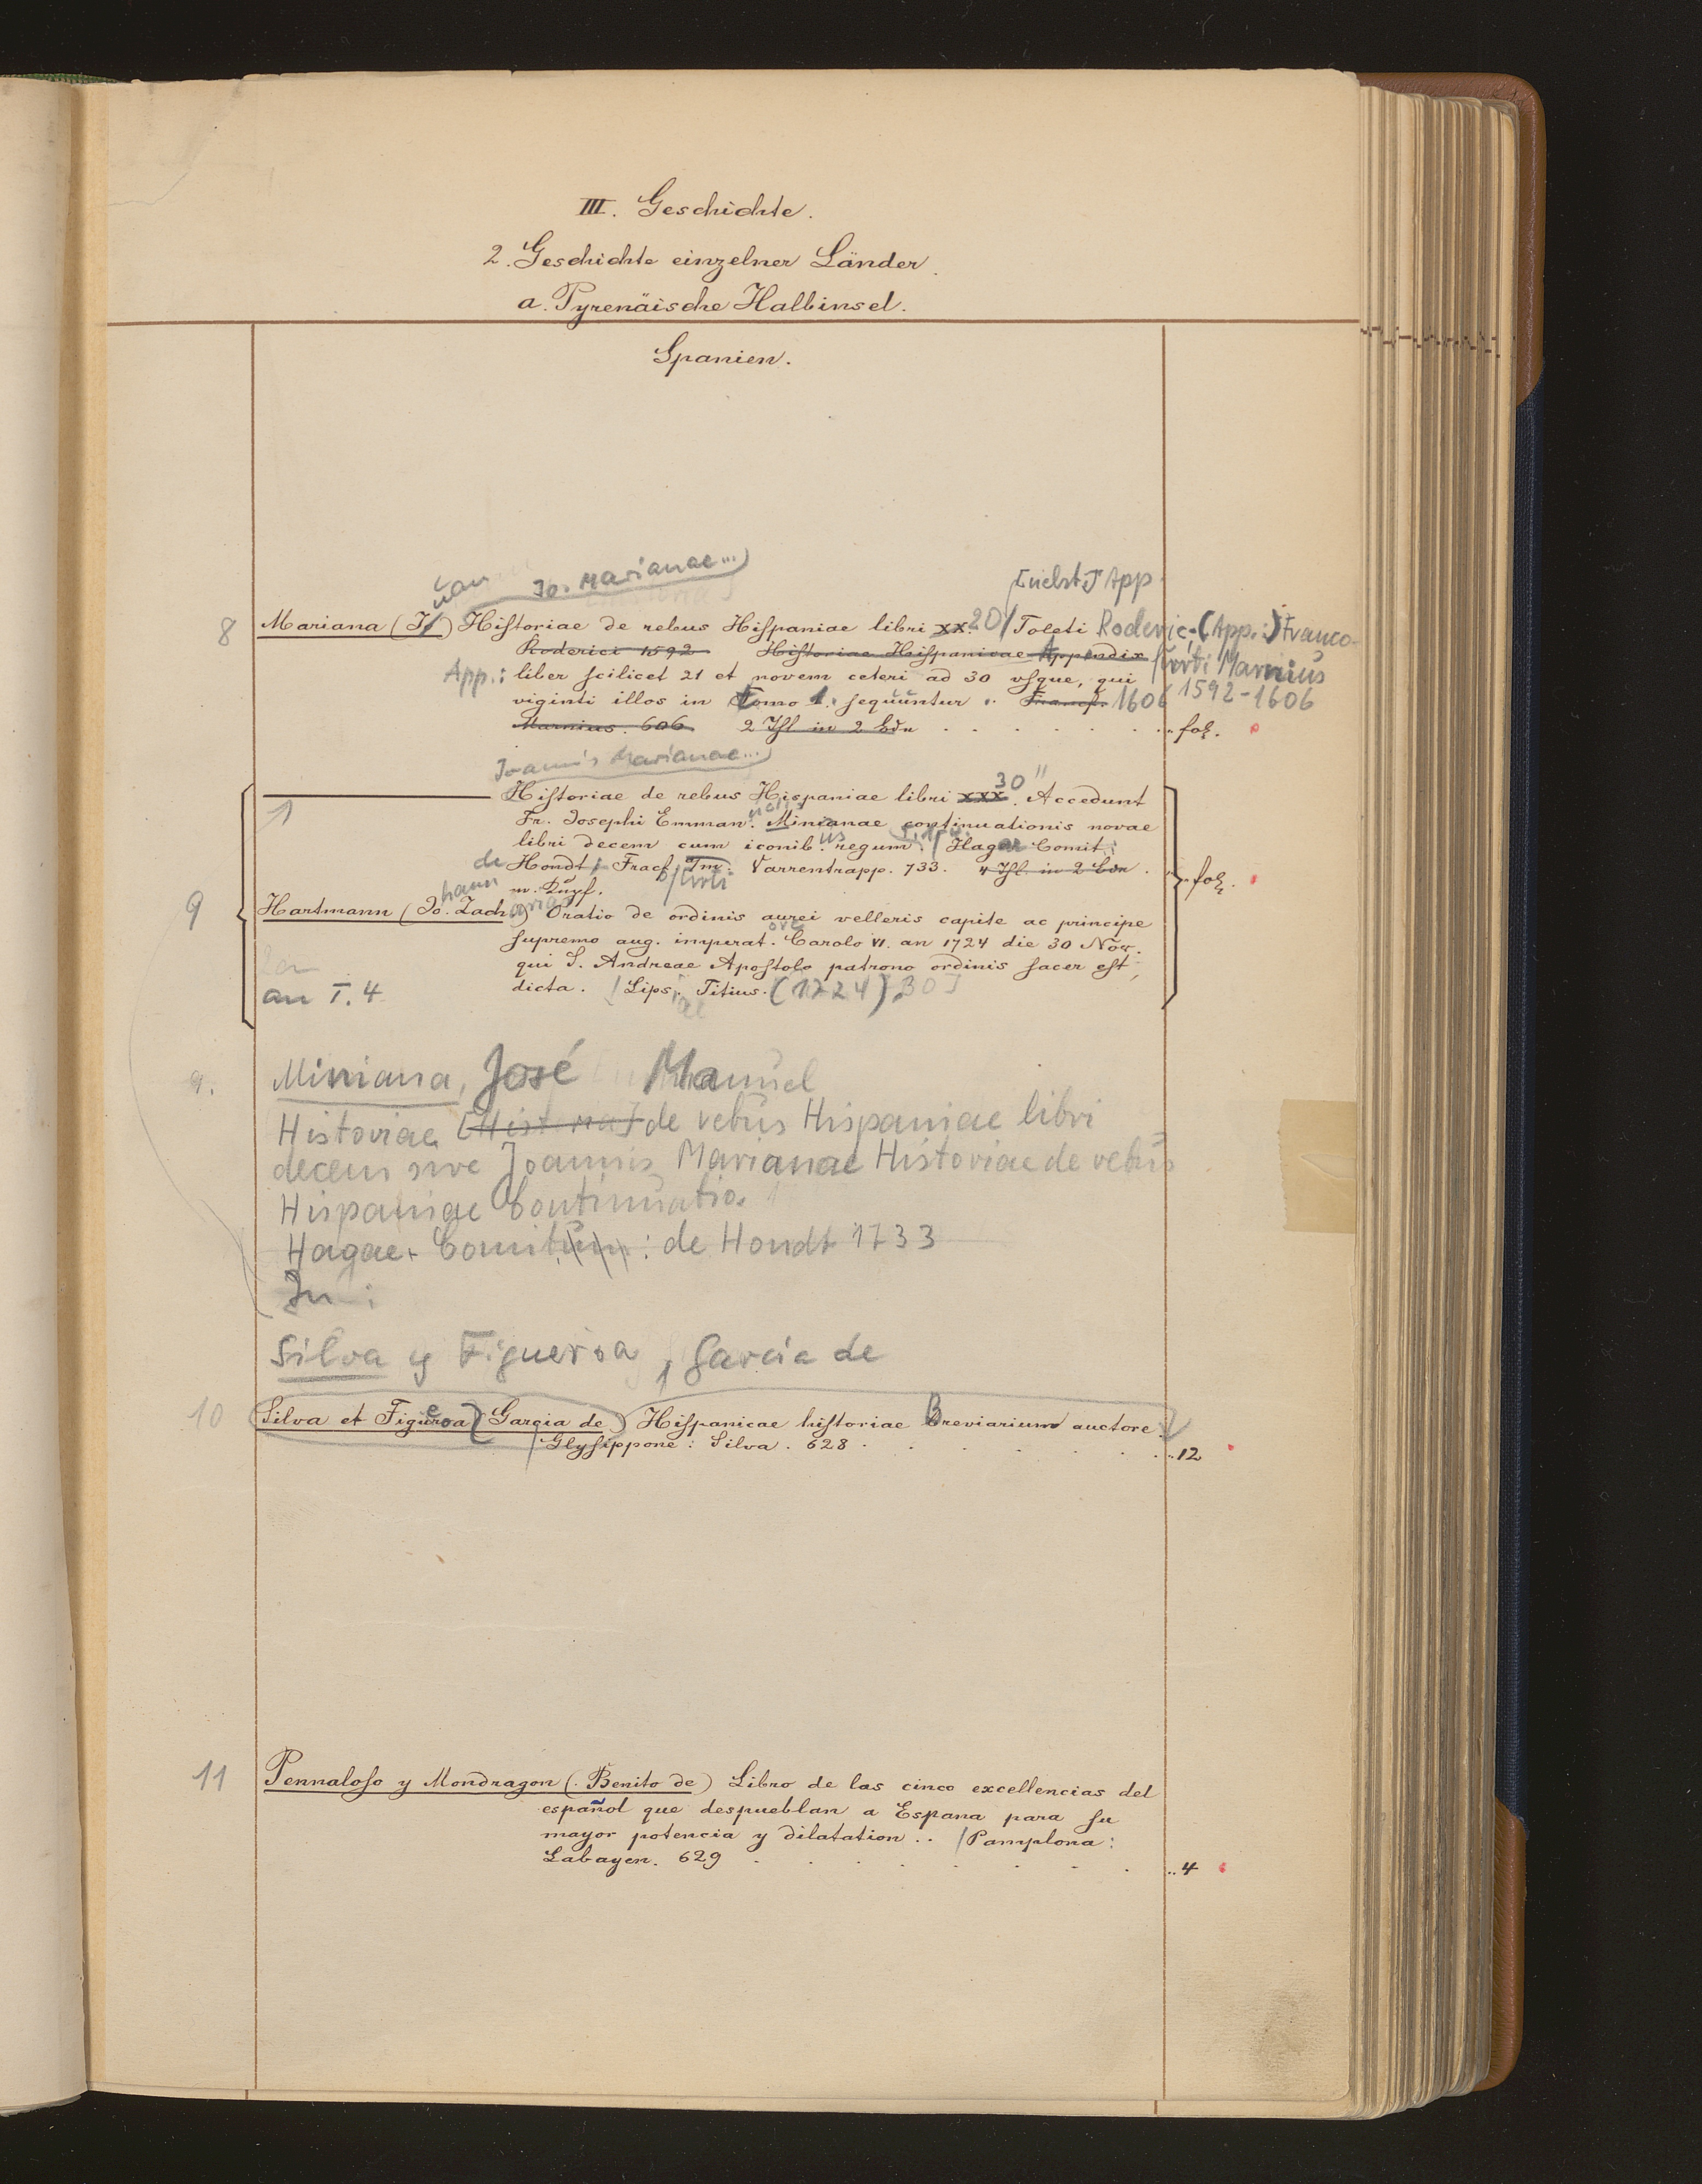 III. Geschichte.
2. Geschichte einzelner Länder.
a. Pyrenäische Halbinsel.
Spanien.
Jo. Marianae...)
[nebst] App
8 Mariana (J) Hiſtoriae de rebus Hiſpaniae libri xx. 20/ Toleti Roderic; (App.:) Franco-
Roderici 1592 Hiſtoriae Hiſpanicae Appendix furti Marnius
App.: liber ſcilicet 21 et novem ceteri ad 30 uſque, qui
viginti illos in Tomo 1. ſequuntur .. Francf. 1606 1592-1606
Marnius. 606 2 Thl in 2 Bdn . . . . . . ... fol.
Joannis Marianae...)
Hiſtoriae de rebus Hispaniae libri xxx 30. Accedunt
Fr. Josephi Emman. Minianae continuationis novae
libri decem cum iconib.us regum. / Hagae Comit:
de Hondt; Fracf. a/m. furti Varrentrapp. 733. 4 Thl. in 2 Bdn. ... fol.
m. Kupf.
9 Hartmann (Jo.hann Zach.arias) Oratio de ordinis aurei velleris capite ac principe
ſupremo aug. imperat.ore Carolo VI. an 1724 die 30 Nov.
qui S. Andreae Apoſtolo patrono ordinis ſacer eſt,
an T. 4 dicta. / Lips.iae: Titius. (1724). 30]
9. Miniana, José Manuel
Historiae [Historia] de rebus Hispaniae libri
decem sive Joannis Marianae Historiae de rebus
Hispaniae Continuatio.
Hagae-Comitum: de Hondt 1733
In:
Silva y Figueroa, Garcia de
10 Silva et Figueroa (Garcia de) Hiſpanicae hiſtoriae Breviarium auctore.
/ Glyſippone: Silva. 628 . . . . . . ... 12
11 Pennaloſo y Mondragon (. Benito de) Libro de las cinco excellencias del
español que despueblan a Espana para ſu
mayor potencia y dilatation .. /Pamplona:
Labayen. 629 . . . . . . . ... 4